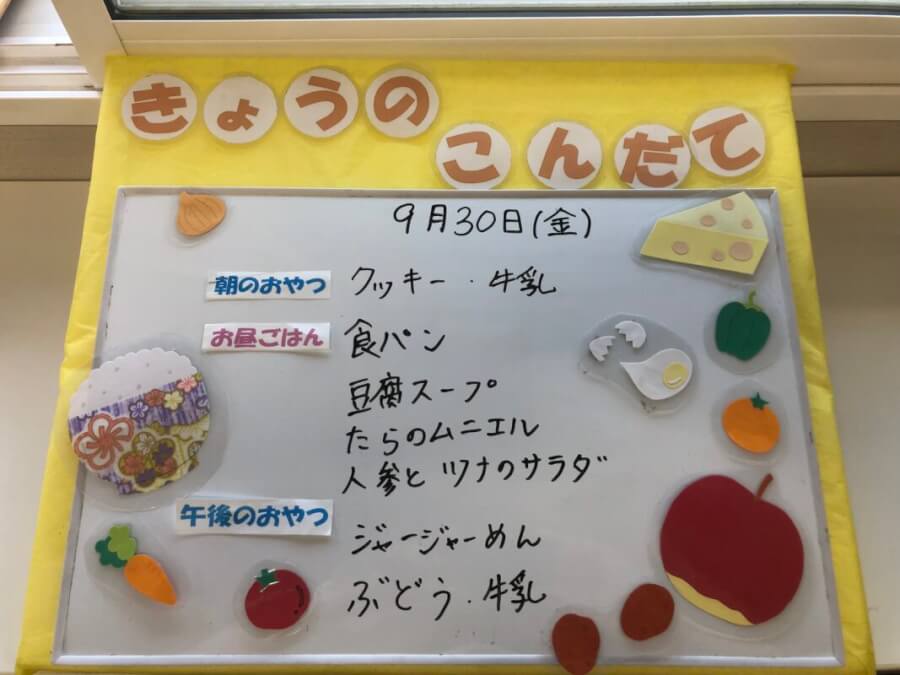 きょうの
こんだて
9月30日(金)
朝のおやつ クッキー・牛乳
お昼ごはん 食パン
豆腐スープ
たらのムニエル
人参とツナのサラダ
午後のおやつ ジャージャーめん
ぶどう・牛乳